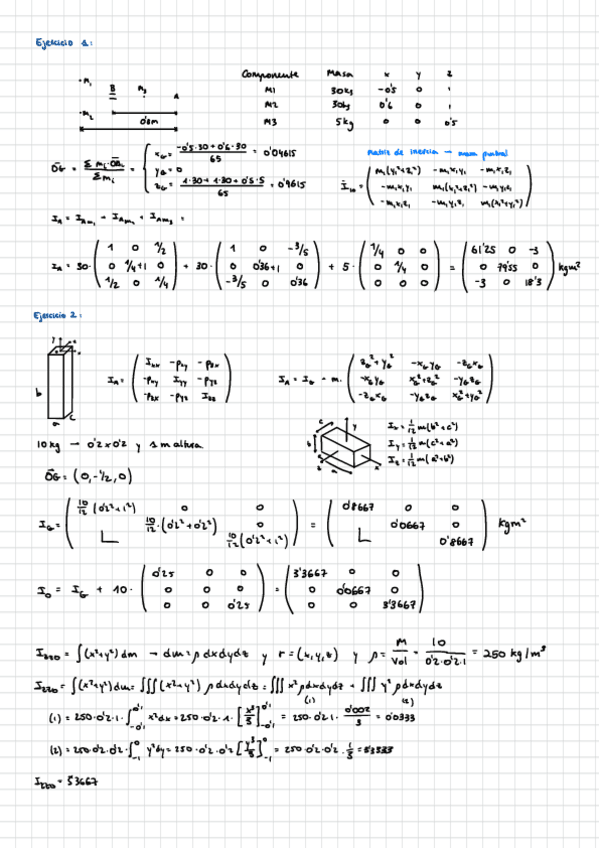 Ejercicio 1:
Componente Masa x y z
M1 30kg -0'5 0 1
M2 30kg 0'6 0 1
M3 5kg 0 0 0'5
·m₁ B m₃ A
·m₂
0'8m
OG = Σ mᵢ·OBᵢ / Σ mᵢ = { x_G = (-0'5·30+0'6·30)/65 = 0'04615
y_G = 0
z_G = (1·30+1·30+0'5·5)/65 = 0'9615
Matriz de inercia → masa puntual
m₁(y₁²+z₁²) -m₁x₁y₁ -m₁x₁z₁
-m₁x₁y₁ m₁(x₁²+z₁²) -m₁y₁z₁
-m₁x₁z₁ -m₁y₁z₁ m₁(x₁²+y₁²)
I_A = I_Am₁ + I_Am₂ + I_Am₃ =
I_A = 30· (1 0 1/2 ; 0 1/4+1 0 ; 1/2 0 1/4) + 30· (1 0 -3/5 ; 0 0'36+1 0 ; -3/5 0 0'36) + 5· (1/4 0 0 ; 0 1/4 0 ; 0 0 0) = (61'25 0 -3 ; 0 79'55 0 ; -3 0 18'3) kgm²
Ejercicio 2:
b a c
I_A = (Ixx -Pxy -Pzx ; -Pxy Iyy -Pyz ; -Pzx -Pyz Izz)
I_A = I_G + m· (z_G²+y_G² -x_Gy_G -z_Gx_G ; -x_Gy_G x_G²+z_G² -y_Gz_G ; -z_Gx_G -y_Gz_G x_G²+y_G²)
10kg → 0'2x0'2 y 1m altura
Ix = 1/12 m(b²+c²)
Iy = 1/12 m(c²+a²)
Iz = 1/12 m(a²+b²)
OG = (0,-1/2,0)
I_G = (10/12 (0'2²+1²) 0 0 ; 10/12·(0'2²+0'2²) 0 ; 10/12 (0'2²+1²)) = (0'8667 0 0 ; 0'0667 0 ; 0'8667) kgm²
I_O = I_G + 10· (0'25 0 0 ; 0 0 0 ; 0 0 0'25) = (3'3667 0 0 ; 0 0'0667 0 ; 0 0 3'3667)
Izzo = ∫(x²+y²)dm → dm=ρdxdydz y r=(x,y,z) y ρ = M/Vol = 10/(0'2·0'2·1) = 250 kg/m³
Izzo = ∫(x²+y²)dm = ∫∫∫(x²+y²) ρdxdydz = ∫∫∫ x²ρdxdydz + ∫∫∫ y²ρdxdydz
(1) (2)
(1) = 250·0'2·1·∫₋₀'₁^0'1 x²dx = 250·0'2·1·[x³/3]₋₀'₁^0'1 = 250·0'2·1· 0'002/3 = 0'0333
(2) = 250·0'2·0'2·∫₋₁^0 y²dy = 250·0'2·0'2[y³/3]₋₁^0 = 250·0'2·0'2·1/3 = 3'3333
Izzo = 3'3667